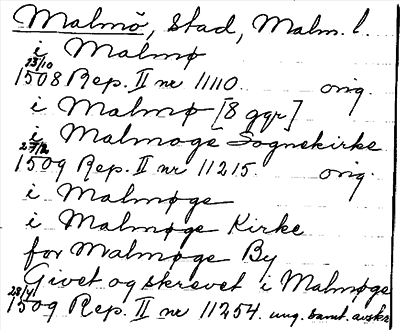 Malmö, stad, Malm. l.
i Malmø
13/10
1508 Rep. II nr 11110. orig.
i Malmø [8 ggr]
i Malmoge Sognekirke
27/2
1509 Rep. II nr 11215. orig.
i Malmøge
i Malmøge Kirke
for Malmøge By
Givet og skrevet i Malmøge
1509 Rep. II nr 11254. ung. samt. avskr.